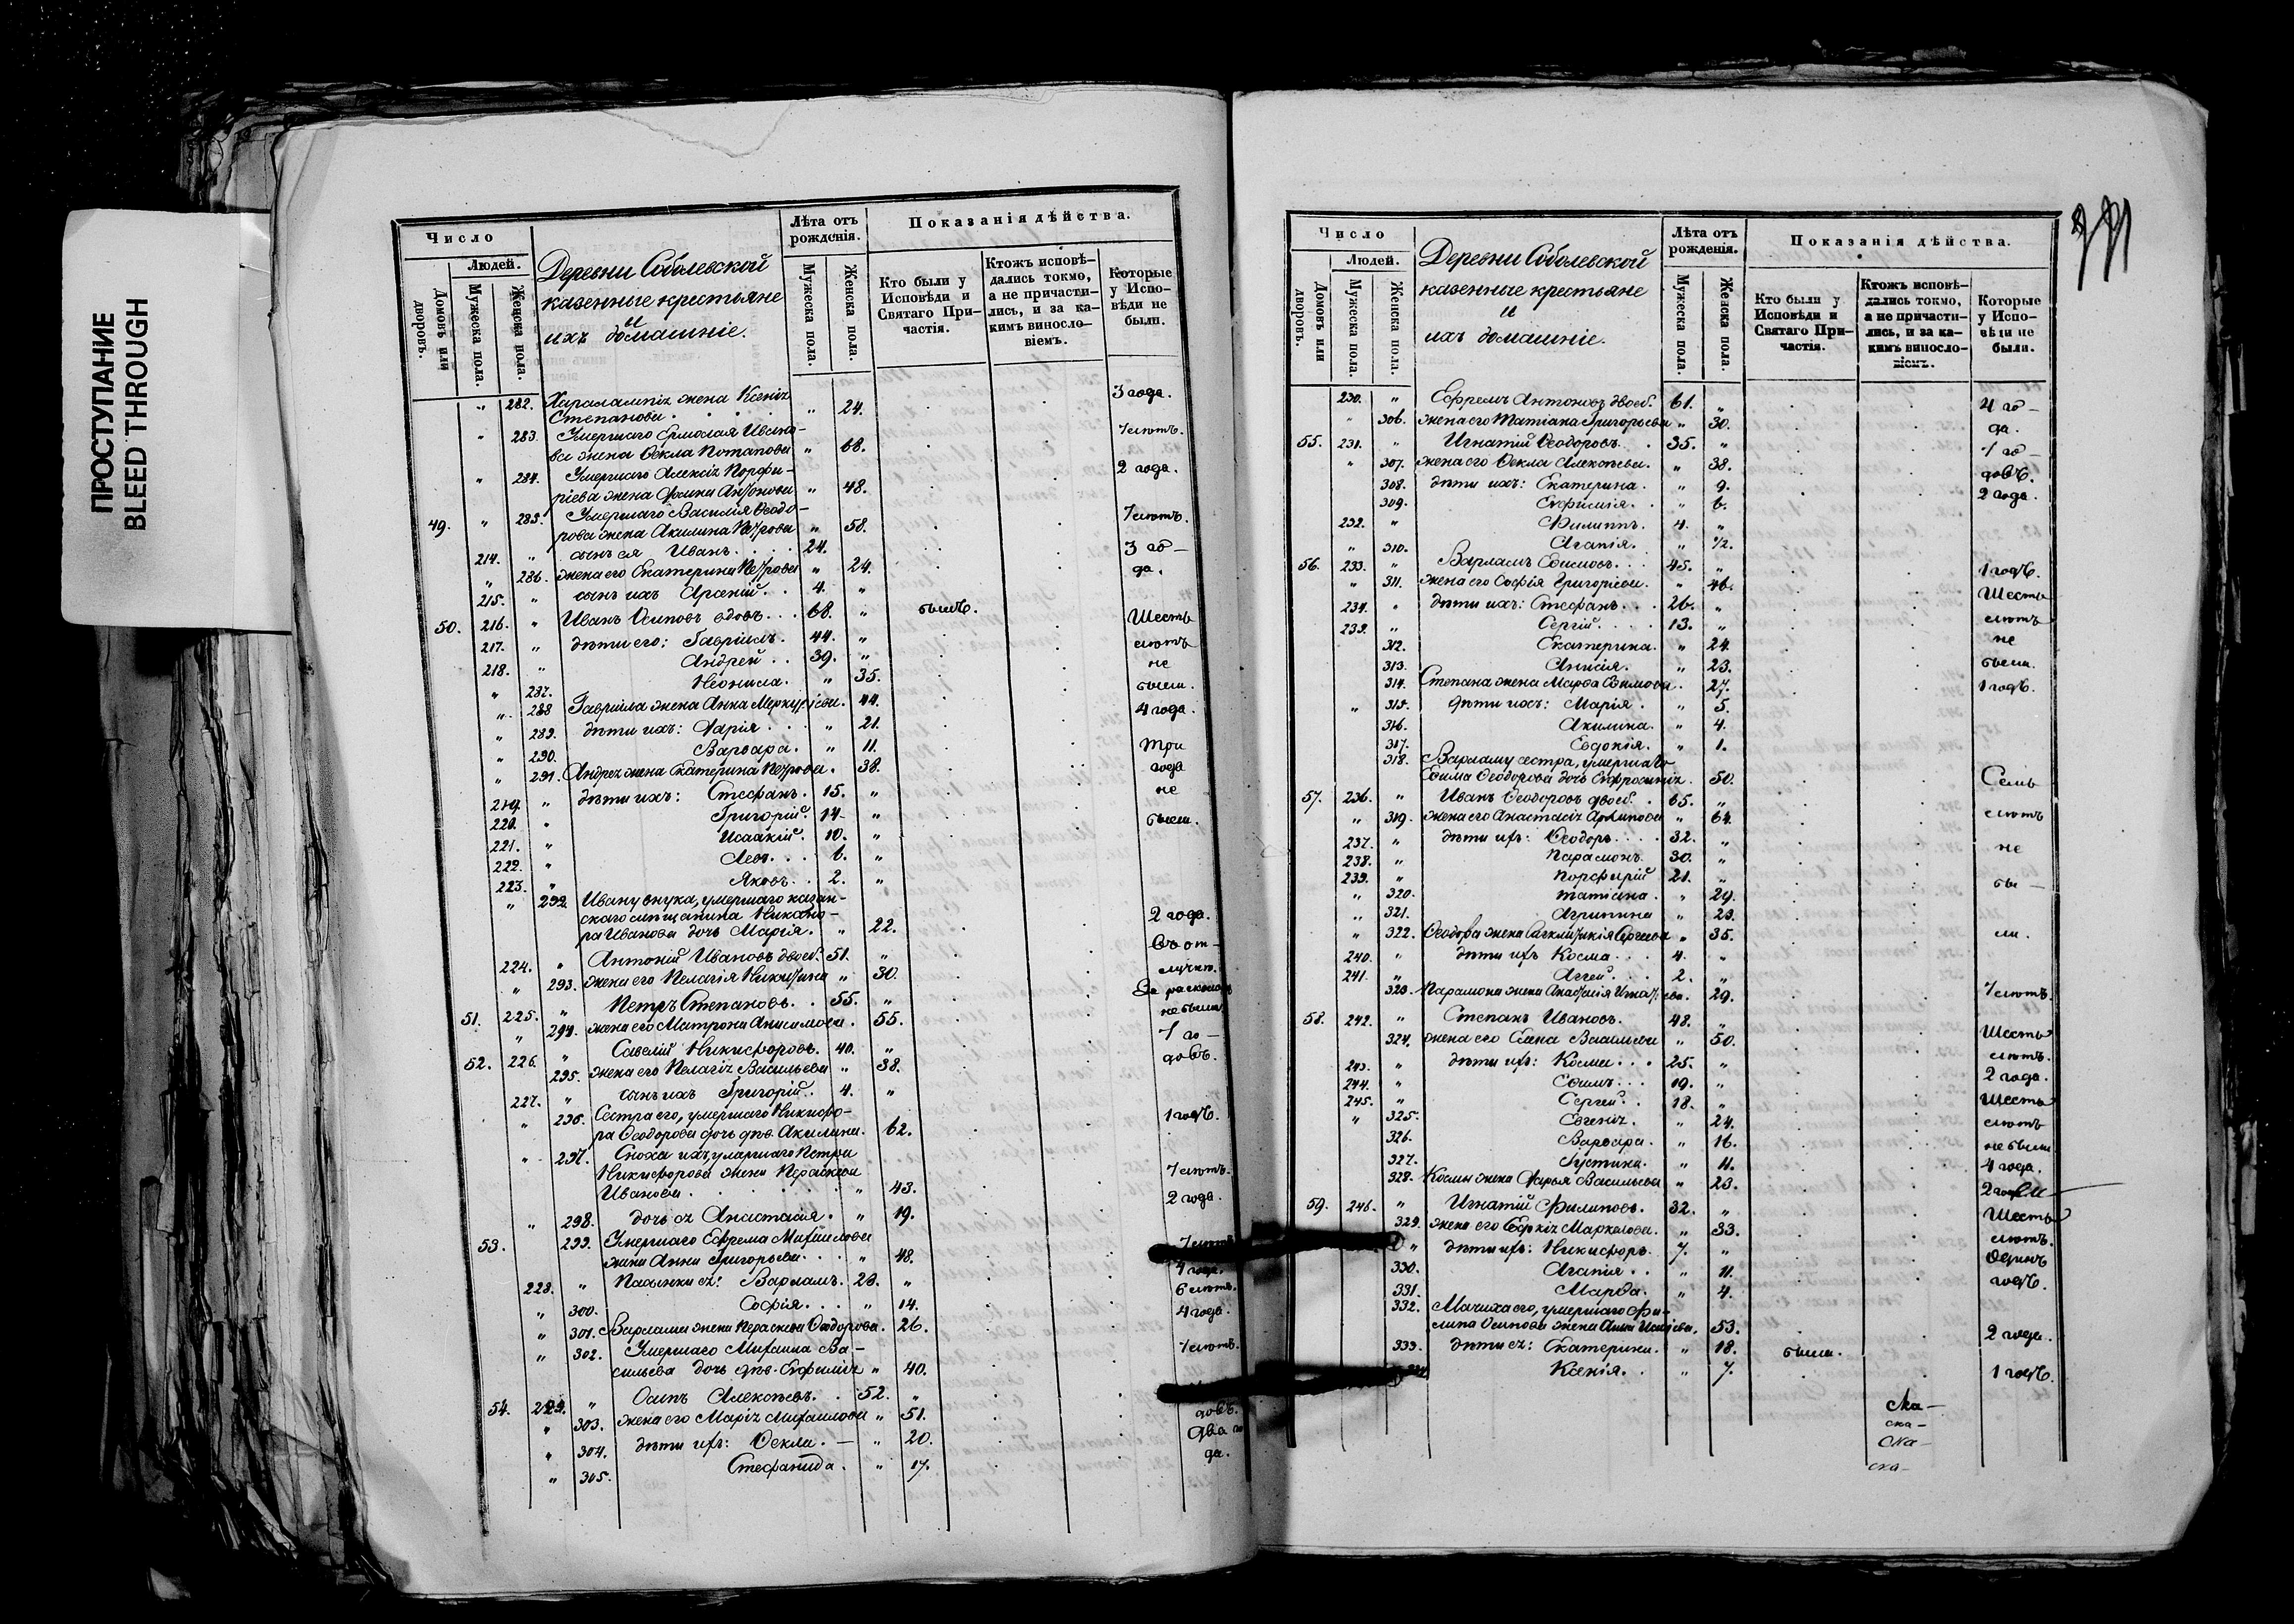 ПРОСТУПАНИЕ
BLEED THROUGH
Число
Людей.
Домовъ или дворовъ.
Мужеска пола.
Женска пола.
Деревни Соболевской
казенные крестьяне
и
ихъ домашніе.
Лѣта отъ рожденія.
Мужеска пола.
Женска пола.
Показанія дѣйства.
Кто были у Исповѣди и Святаго Причастія.
Ктожъ исповѣдались токмо, а не причастились, и за какимъ винословіемъ.
Которые у Исповѣди не были.
" 282. Харалампія жена Ксенія 3 года.
Степанова. " 24.
" 283. Умершаго Ермолая Ивано- 7 лѣтъ.
ва жена Ѳекла Потапова " 68.
" 284. Умершаго Алексія Порфи- 2 года.
ріева жена Антонова " 48.
49. " 285. Умершаго Василія Ѳеодо- 7 лѣтъ.
рова жена Акилина Петрова " 58.
214. " сынъ ея Иванъ. 24. 3 го-
" 286. жена его Екатерина Петрова " 24. да.
215. " сынъ ихъ Арсеній. 4. "
50. 216. " Иванъ Осиповъ вдовъ. 68. " былъ.
217. " дѣти его: Гавріилъ. 44. " Шесть
218. " Андрей. 39. " лѣтъ
" 287. Неонила. " 35. не
" 288 Гавріила жена Анна Меркуріева. 44. были.
" 289. дѣти ихъ: Дарія. " 21. 4 года.
" 290. Варвара. " 11. Три
" 291. Андрея жена Екатерина Петрова. 38. года
219. " дѣти ихъ: Стефанъ. 15. " не
220. " Григорій. 14. " были.
221. " Исаакій. 10. "
222. " Левъ. 6. "
223. " Яковъ. 2. "
" 292. Ивану внука, умершаго казан-
скаго мѣщанина Никано-
ра Иванова дочь Марія. " 22. 2 года.
224. " Антоній Ивановъ двоеб. 51. " Въ от-
" 293. жена его Пелагія Никитина " 30. лучкѣ.
51. 225. " Петръ Степановъ. 55. " За расколомъ
" 294. жена его Матрона Анисимова. 55. не были
52. 226. " Савелій Никифоровъ. 40. " 7 го-
295. жена его Пелагія Васильева " 38. довъ.
227. " сынъ ихъ Григорій. 4. "
" 296. Сестра его, умершаго Никифо-
ра Ѳеодорова дочь дѣв. Акилина. 62. 1 годъ.
" 297. Сноха ихъ, умершаго Петра
Никифорова жена Параскева
Иванова. " 43. 7 лѣтъ.
" 298. дочь ея Анастасія. " 19. 2 года.
53. 299. Умершаго Ефрема Михаилова
жена Анна Григорьева. " 48.
228. " Пасынки ея: Варлаамъ. 23. " 4 года.
" 300. Софія. " 14. 6 лѣтъ.
" 301. Варлаама жена Параскева Ѳеодорова. 26. 4 года.
" 302. Умершаго Михаила Ва-
сильева дочь дѣв. Евфимія " 40. 7 лѣтъ.
54. 229. " Осипъ Алексѣевъ. 52. "
" 303. жена его Марія Михаилова " 51. довъ.
" 304. дѣти ихъ: Ѳекла. " 20. Два го
" 305. Стефанида. " 17. да.
Число
Людей.
Домовъ или дворовъ.
Мужеска пола.
Женска пола.
Деревни Соболевской
казенные крестьяне
и
ихъ домашніе.
Лѣта отъ рожденія.
Мужеска пола.
Женска пола
Показанія дѣйства.
Кто были у Исповѣди и Святаго Причастія.
Ктожъ исповѣдались токмо, а не причастились, и за какимъ винословіемъ.
Которые у Исповѣди не были.
230. " Ефремъ Антоновъ двоеб. 61. " 4 го-
" 306. жена его Татіана Григорьева " 30. да.
55. 231. " Игнатій Ѳеодоровъ. 35. " 7 го-
" 307. жена его Ѳекла Алексѣева. " 38. довъ.
308. дѣти ихъ: Екатерина. " 9. 2 года.
309. Евфимія. " 6.
232. " Филиппъ. 4. "
" 310. Агапія. " ½.
56. 233. " Варлаамъ Ефимовъ. 45. " 1 годъ.
" 311. жена его Софія Григорьева. " 46. Шесть
234. " дѣти ихъ: Стефанъ. 26. " лѣтъ
235. " Сергій. 13. " не
312. Екатерина. " 24. были.
313. Анисія. " 23. 1 годъ.
314. Степана жена Марѳа Ефимова. 27.
" 315. дѣти ихъ: Марія. " 5.
316. Акилина. " 4.
317. Евдокія. " 1.
318. Варлааму сестра, умершаго
Ефима Ѳеодорова дочь Евфросинія. 50. Семь
57. 236. " Иванъ Ѳеодоровъ двоеб. 65. "
" 319. жена его Анастасія Архипова " 64. лѣтъ
237. " дѣти ихъ: Ѳеодоръ. 32. " не
238. " Парамонъ. 30. "
239. " Порфирій 21. " бы-
" 320. Татіана. " 29.
" 321. Агрипина " 23.
" 322. Ѳеодора жена Сергеева " 35. ли.
240. " дѣти ихъ Косма. 4. "
241. " Аггей. 2. "
323. Парамона жена Анастасія Игнатьева. 29. 7 лѣтъ.
58. 242. " Степанъ Ивановъ. 48. " Шесть
324. жена его Елена Васильева " 50. лѣтъ.
243. " дѣти ихъ: Косма. 25. " 2 года.
244. " Ефимъ. 19. " Шесть
245. " Сергей. 18. " лѣтъ
" 325. Евгенія. " 24. не были
326. Варвара. " 16. 4 года.
327. Іустина. " 11.
328. Космы жена Дарья Васильева " 23.
59. 246. " Игнатій Филиповъ. 32. " Шесть
329. жена его Маркелова. " 33. лѣтъ.
" дѣти ихъ: Никифоръ. 7. " Одинъ
330. Агапія. " 11. годъ.
331. Марѳа. " 4.
332. Мачиха его, умершаго Фи-
липа Осипова жена Анна 53. 2 года.
333. дѣти ея: Екатерина. " 18. были.
Ксенія. " 7. 1 годъ.
ска-
ска-
ска-
ска-